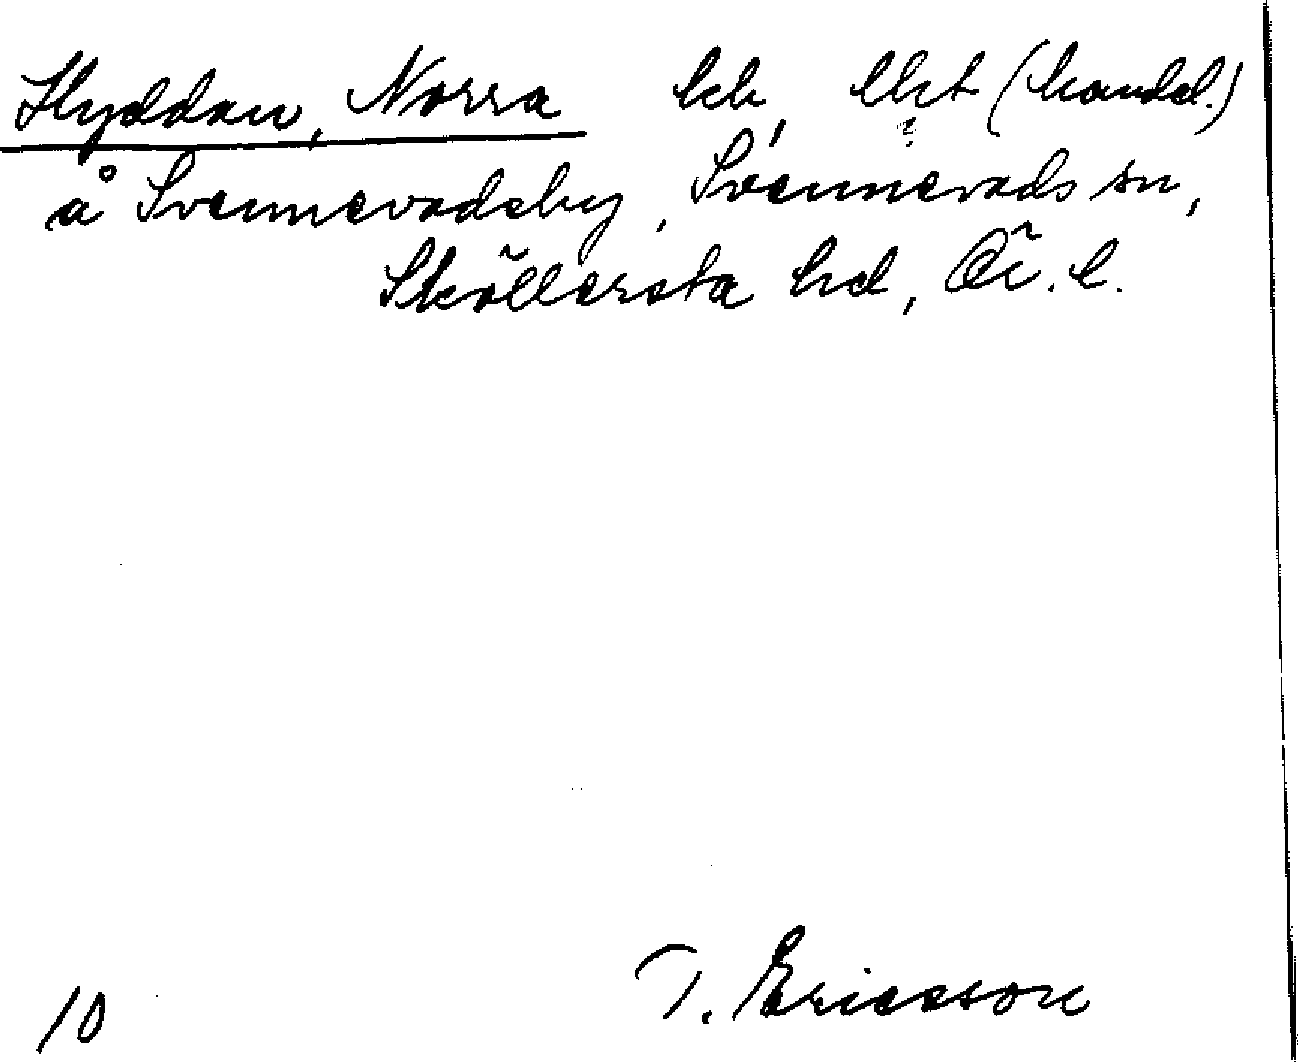 Hyddan, Norra lch, lht (handel.)
å Svennevadsby, Svennevads sn,
Sköllersta hd, Ör. l.
T. Ericsson
10